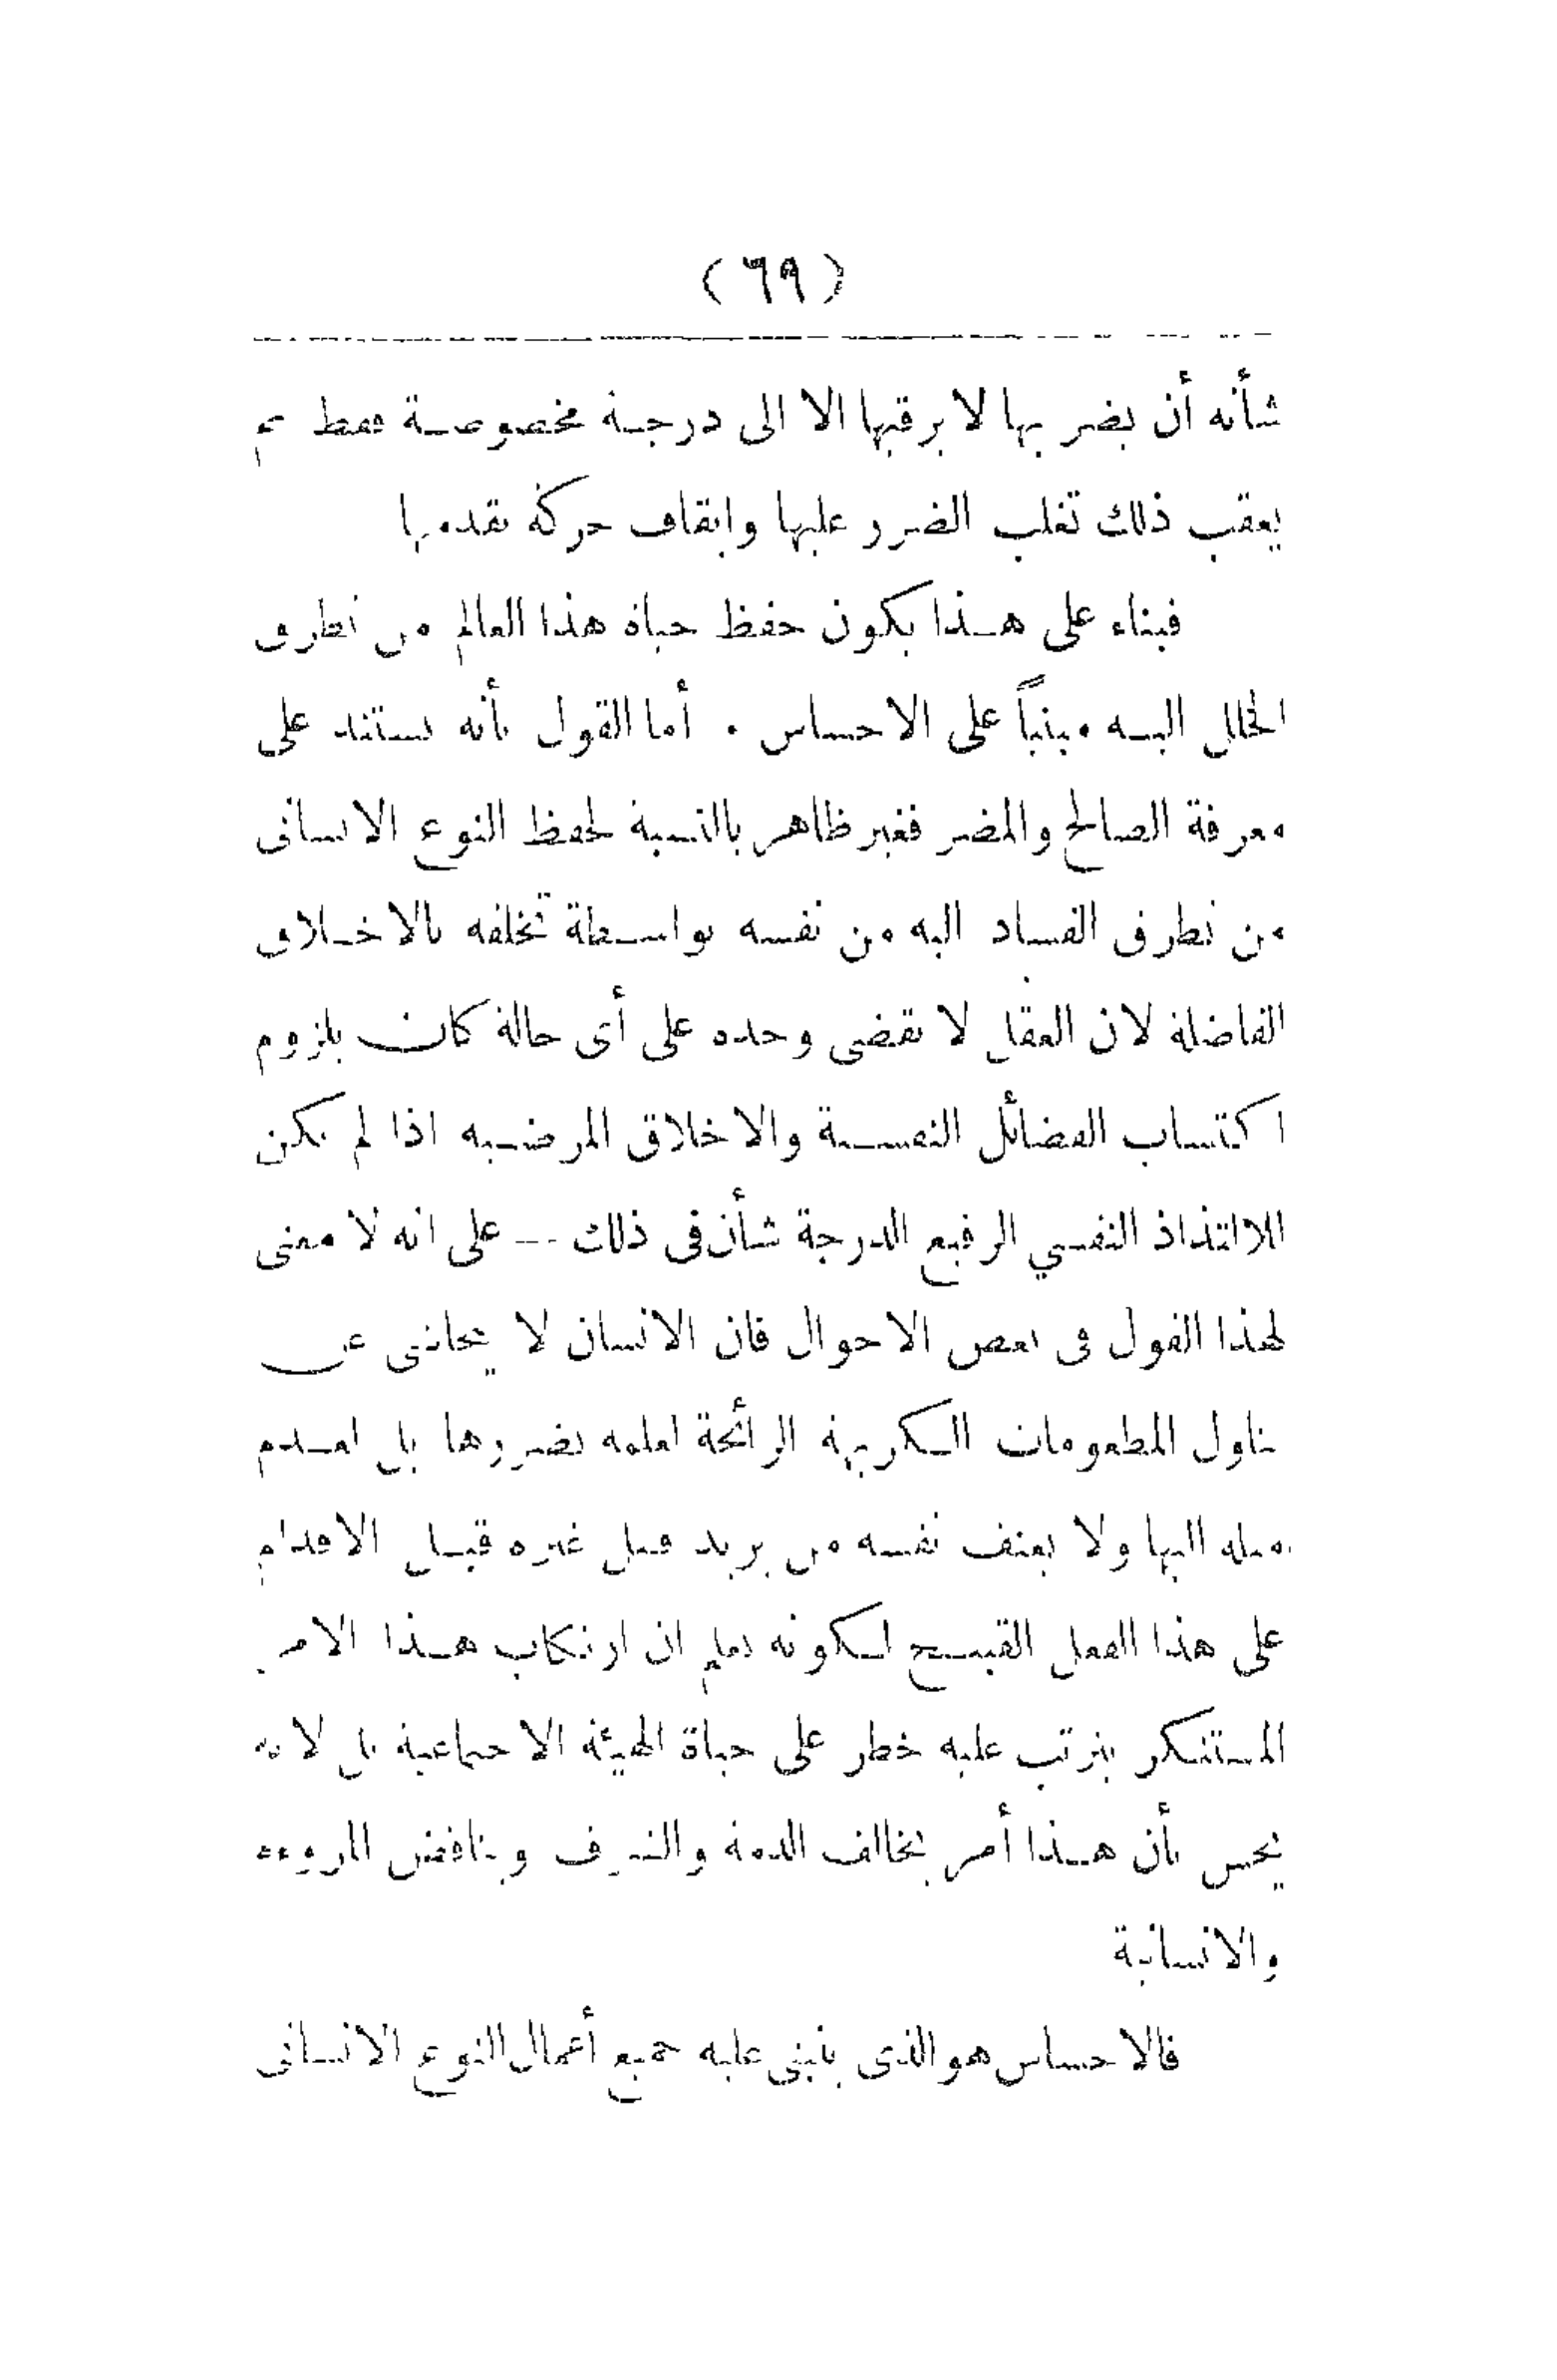 (٦٩)
شأنه أن يضر بها لا يرقيها الا الى درجة مخصوصة فقط ثم
يعقب ذلك تغلب الضرر عليها وايقاف حركة تقدمها
فبناء على هذا يكون حفظ حياة هذا العالم من تطرق
الخلل اليه مبنياً على الاحساس . أما القول بأنه يستند على
معرفة الصالح والمضر فغير ظاهر بالنسبة لحفظ النوع الانسانى
من تطرق الفساد اليه من نفسه بواسطة تخلقه بالاخلاق
الفاضلة لان العقل لا يقضى وحده على أى حالة كان بلزوم
اكتساب الفضائل النفسية والاخلاق المرضيه اذا لم يكن
للالتذاذ النفسي الرفيع الدرجة شأن فى ذلك -- على انه لا معنى
لهذا القول فى بعض الاحوال فان الانسان لا يتحاشى عن
تناول المطعومات الكريهة الرائحة لعلمه بضررها بل لعدم
ميله اليها ولا يعنف نفسه من يريد قتل غيره قبل الاقدام
على هذا الفعل القبيح لكونه يعلم ان ارتكاب هذا الامر
المستنكر يترتب عليه خطر على حياة الهيئة الاجتماعية بل لانه
يحس بأن هذا أمر يخالف الذمة والشرف ويناقض المروءة
والانسانية
فالاحساس هو الذى ينبنى عليه جميع أعمال النوع الانسانى